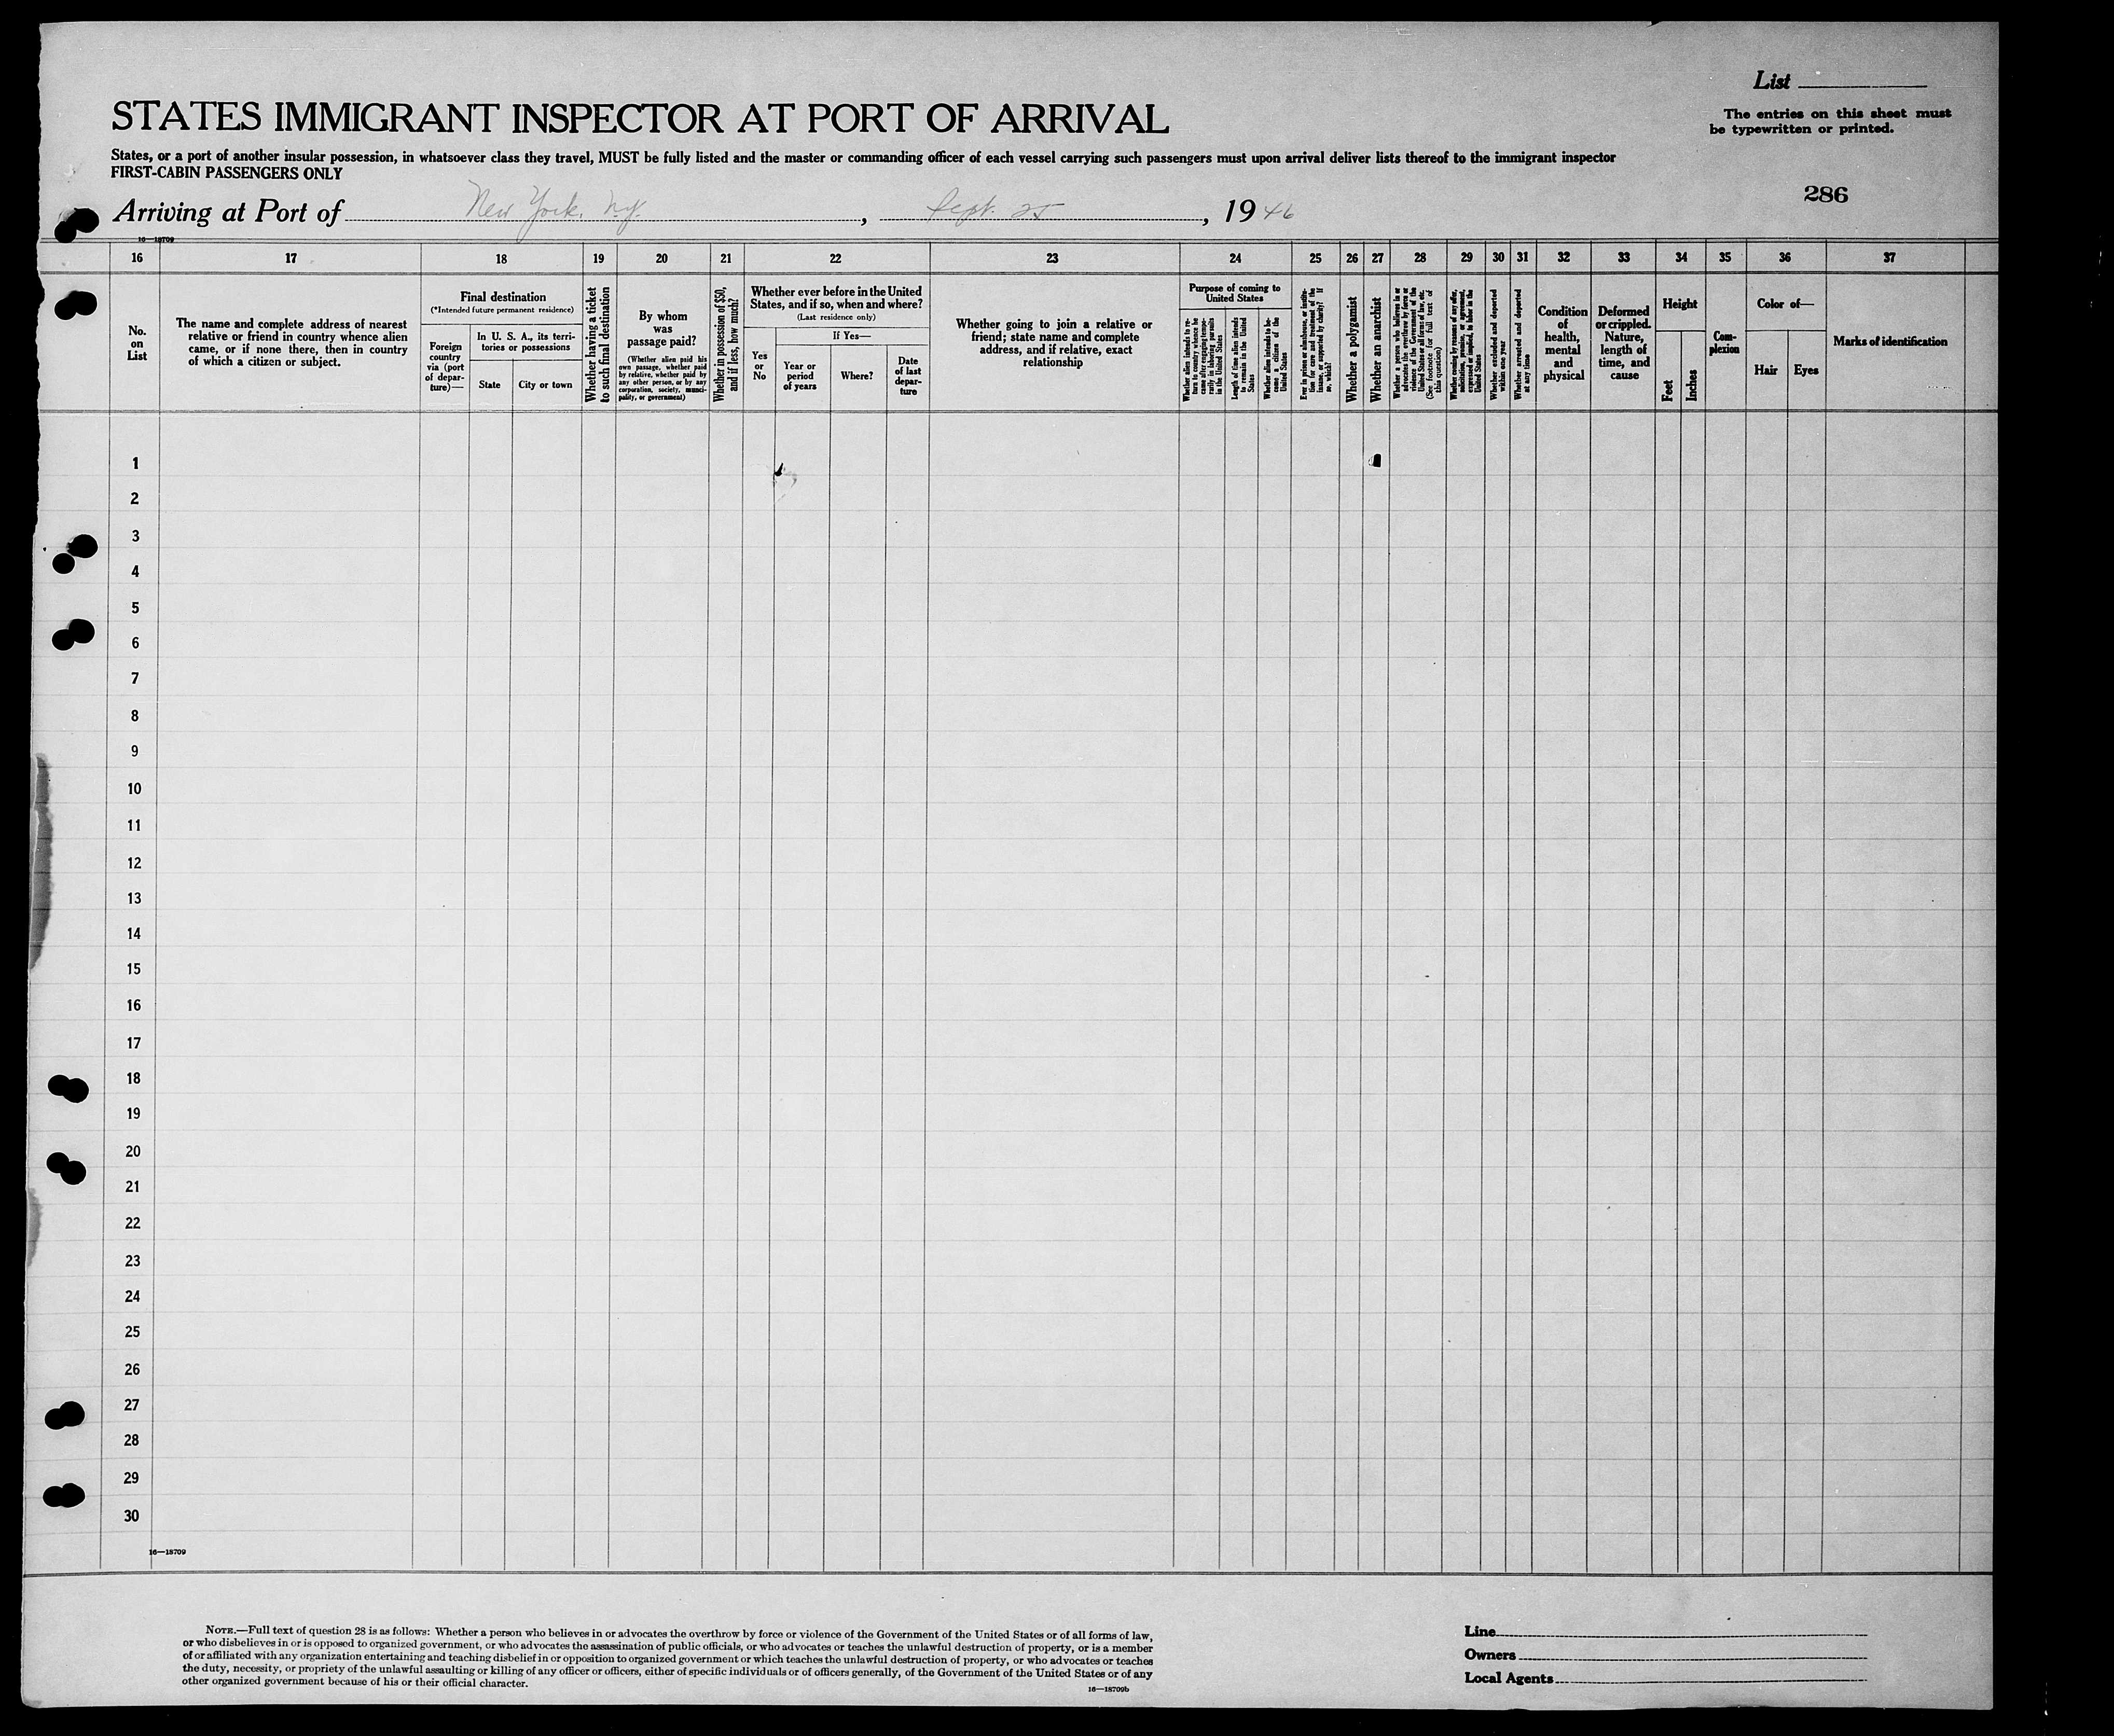 List
The entries on this sheet must
be typewritten or printed.
STATES IMMIGRANT INSPECTOR AT PORT OF ARRIVAL
States, or a port of another insular possession, in whatsoever class they travel, MUST be fully listed and the master or commanding officer of each vessel carrying such passengers must upon arrival deliver lists thereof to the immigrant inspector
FIRST-CABIN PASSENGERS ONLY
286
Arriving at Port of New York, N.Y. , Sept. 25 , 19 46
16—18709
16 17 18 19 20 21 22 23 24 25 26 27 28 29 30 31 32 33 34 35 36 37
No.
on
List
The name and complete address of nearest
relative or friend in country whence alien
came, or if none there, then in country
of which a citizen or subject.
Final destination
(*Intended future permanent residence)
Foreign
country
via (port
of depar-
ture)—
In U. S. A., its terri-
tories or possessions
State
City or town
Whether having a ticket
to such final destination
By whom
was
passage paid?
(Whether alien paid his
own passage, whether paid
by relative, whether paid by
any other person, or by any
corporation, society, munici-
pality, or government)
Whether in possession of $50,
and if less, how much?
Whether ever before in the United
States, and if so, when and where?
(Last residence only)
Yes
or
No
If Yes—
Year or
period
of years
Where?
Date
of last
depar-
ture
Whether going to join a relative or
friend; state name and complete
address, and if relative, exact
relationship
Purpose of coming to
United States
Whether alien intends to re-
turn to country whence he
came after engaging tempo-
rarily in laboring pursuits
in the United States
Length of time alien intends
to remain in the United
States
Whether alien intends to be-
come a citizen of the
United States
Ever in prison or almshouse, or institu-
tion for care and treatment of the
insane, or supported by charity? If
so, which?
Whether a polygamist
Whether an anarchist
Whether a person who believes in or
advocates the overthrow by force or
violence of the Government of the
United States or all forms of law, etc.
(See footnote for full text of
this question)
Whether coming by reasons of any offer,
solicitation, promise, or agreement,
expressed or implied, to labor in the
United States
Whether excluded and deported
within one year
Whether arrested and deported
at any time
Condition
of
health,
mental
and
physical
Deformed
or crippled.
Nature,
length of
time, and
cause
Height
Feet
Inches
Com-
plexion
Color of—
Hair
Eyes
Marks of identification
1
2
3
4
5
6
7
8
9
10
11
12
13
14
15
16
17
18
19
20
21
22
23
24
25
26
27
28
29
30
16—18709
NOTE.—Full text of question 28 is as follows: Whether a person who believes in or advocates the overthrow by force or violence of the Government of the United States or of all forms of law,
or who disbelieves in or is opposed to organized government, or who advocates the assassination of public officials, or who advocates or teaches the unlawful destruction of property, or is a member
of or affiliated with any organization entertaining and teaching disbelief in or opposition to organized government or which teaches the unlawful destruction of property, or who advocates or teaches
the duty, necessity, or propriety of the unlawful assaulting or killing of any officer or officers, either of specific individuals or of officers generally, of the Government of the United States or of any
other organized government because of his or their official character.
16—18709b
Line
Owners
Local Agents